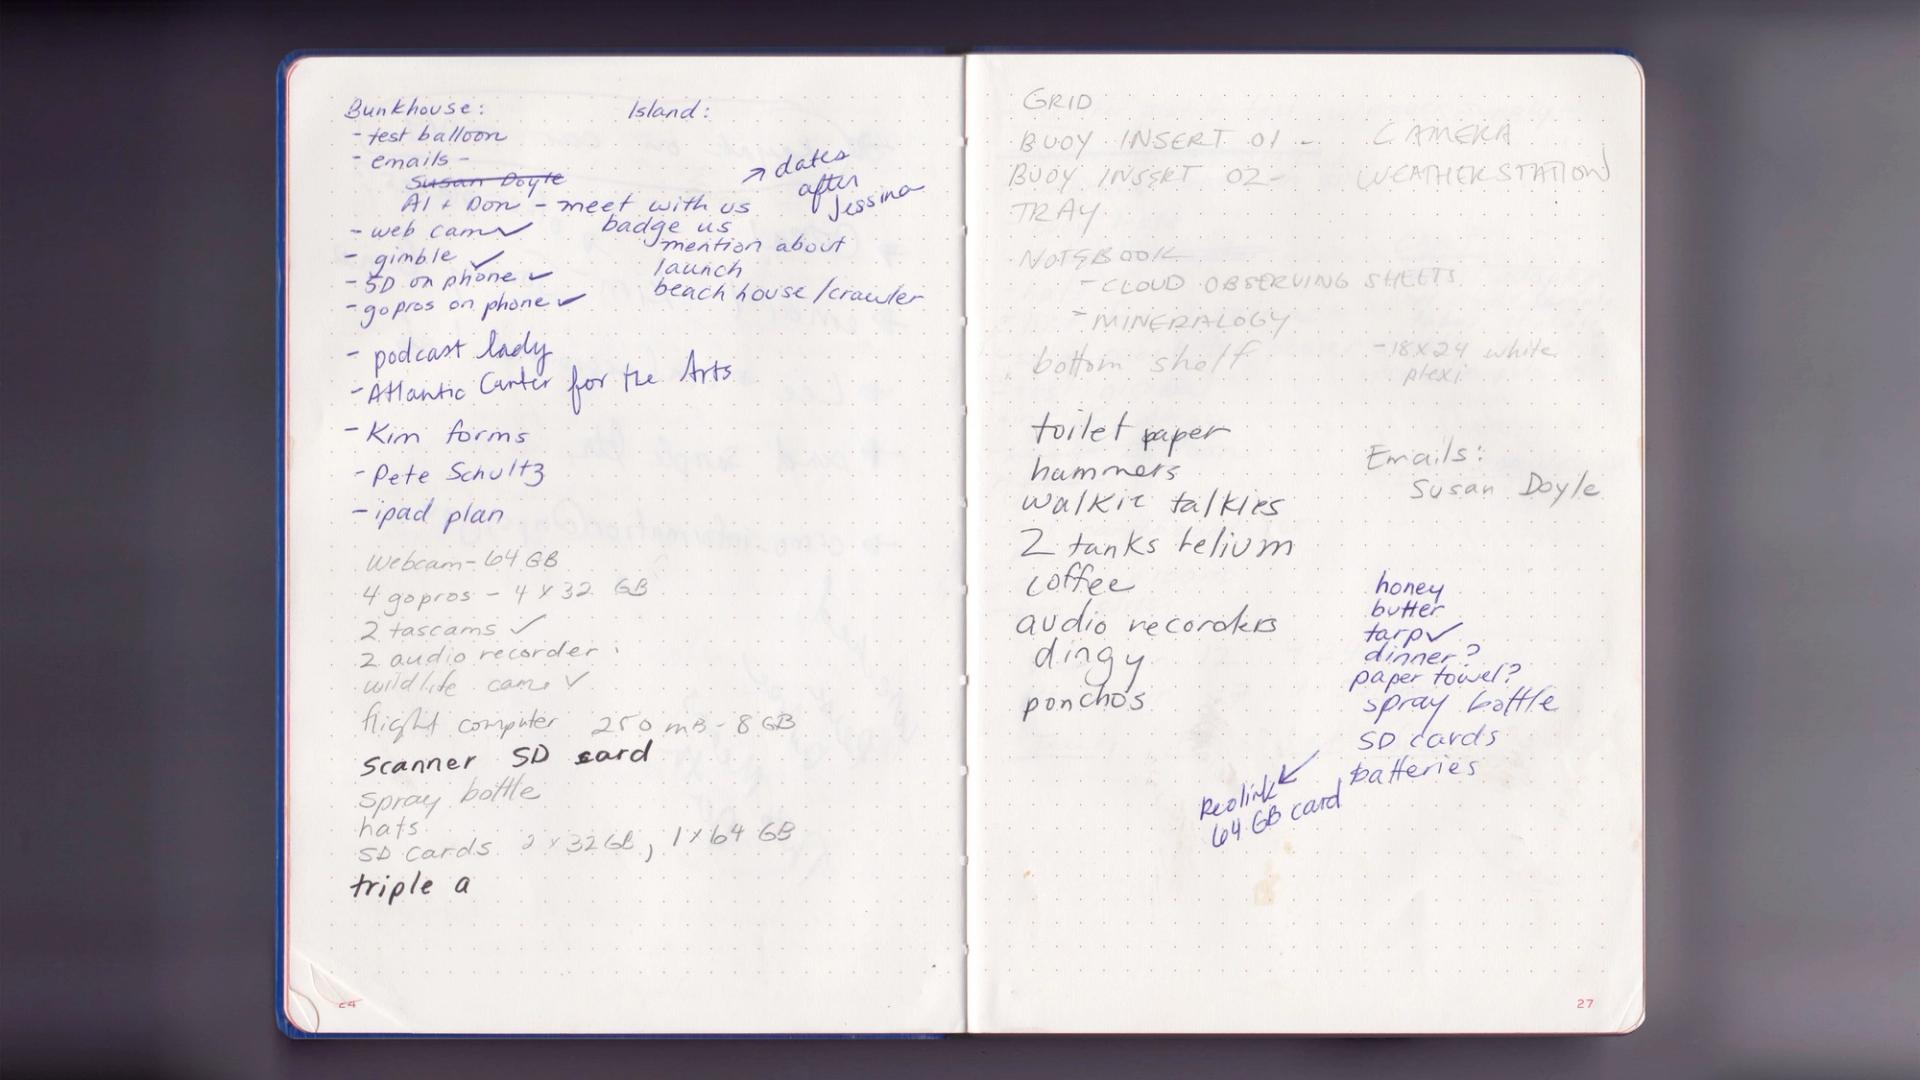 Bunkhouse:
- test balloon
- emails -
Susan Doyle
Al + Don - meet with us
badge us
mention about
launch
beach house/crawler
→ dates
after
Jessina
- web cam ✓
- gimble ✓
- SD on phone ✓
- gopros on phone ✓
- podcast lady
- Atlantic Canter for the Arts
- Kim forms
- Pete Schultz
- ipad plan
Webcam - 64 GB
4 gopros - 4 x 32 GB
2 tascams ✓
2 audio recorder
wildlife came ✓
flight computer 250 mB - 8 GB
scanner SD card
spray bottle
hats
SD cards 2 x 32 GB, 1 x 64 GB
triple a
24
Island:
GRID
BUOY INSERT 01 - CAMERA
BUOY INSERT 02 - WEATHERSTATION
TRAY
NOTEBOOK
- CLOUD OBSERVING SHEETS
- MINERALOGY
bottom shelf
- 18x24 white
plexi
toilet paper
hammers
walkie talkies
2 tanks helium
coffee
audio recorders
dingy
ponchos
Emails:
Susan Doyle
honey
butter
tarp ✓
dinner?
paper towel?
spray bottle
SD cards
batteries
Reolink
64 GB card
27